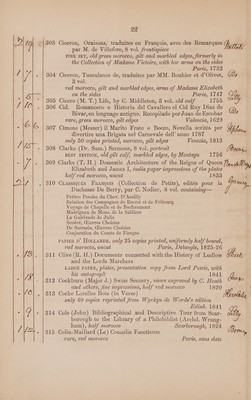 22
303 Ciceron, Oraisons, traduites en François, avec des Remarques
par M. de Villefore, 8 vol. frontispiece
FINE SET, old green morocco, gilt and marbled edges, formerly in
the Collection of Madame Victoire, with her arms on the sides
Paris, 1732
304 Ciceron, Tusculanes de, traduites par MM. Bouhier et d'Olivet,
3 vol.
red morocco, gilt and marbled edges, arms of Madame Elizabeth
on the sides
Paris, 1747
305 Cicero (M. T.) Life, by C. Middleton, 3 vol. old calf 1755
306 Cid. Romancero e Historia del Cavallero el Cid Ruy Diaz de
Bivar, en lenguage antiguo. Recopilado por Juan de Escobar
rare, green morocco, gilt edges Valencia, 1629
307 Cimone (Messer) il Marito Frate e Boem, Novella scritta per
divertire una Brigata nel Carnevale dell' anno 1787
only 50 copies printed, morocco, gilt edges Venezia, 1813
308 Clarke (Dr. Sam.) Sermons, 8 vol. portrait
BEST EDITION, old gilt calf, marbled edges, by Montagu 1756
309 Clarke (T. H.) Domestic Architecture of the Reigns of Queen
Elizabeth and James I, india paper impressions of the plates
half red morocco, uncut
310 Classiques François (Collection de Petits), edités pour la
Duchesse De Berry, par C. Nodier, 8 vol. containing—
Petites Poesies du Chev. D'Aceilly
Relation des Campagnes de Rocroi et de Fribourg
Voyage de Chapelle et de Bachaumont
Madrigaux de Mons. de la Sablière
La Guirlande de Julie
Senécé, Œuvres Choisies
De Sarrasin, Œuvres Choisies
Conjuration du Comte de Fiesque
PAPIER D' HOLLANDE, only 25 copies printed, uniformly half bound,
red morocco, uncut Paris, Delangle, 1825-26
311 Clive (R. H.) Documents connected with the History of Ludlow
and the Lords Marchers
LARGE PAPER, plates, presentation copy from Lord Powis, with
his autograph 1841
312 Cockburn (Major J.) Swiss Scenery, views engraved by C. Heath
and others, fine impressions, half red morocco 1820
313 Cocke Lorelles Bote (in Verse)
only 40 copies reprinted from Wynkyn de Worde's edition
Edinb. 1841
314 Cole (John) Bibliographical and Descriptive Tour from Scar-
borough to the Library of a Philobiblist (Archd. Wrang-
ham), half morocco Scarborough, 1824
315 Colin-Maillard (Le) Comedie Facetieuse
rare, red morocco Paris, sans date